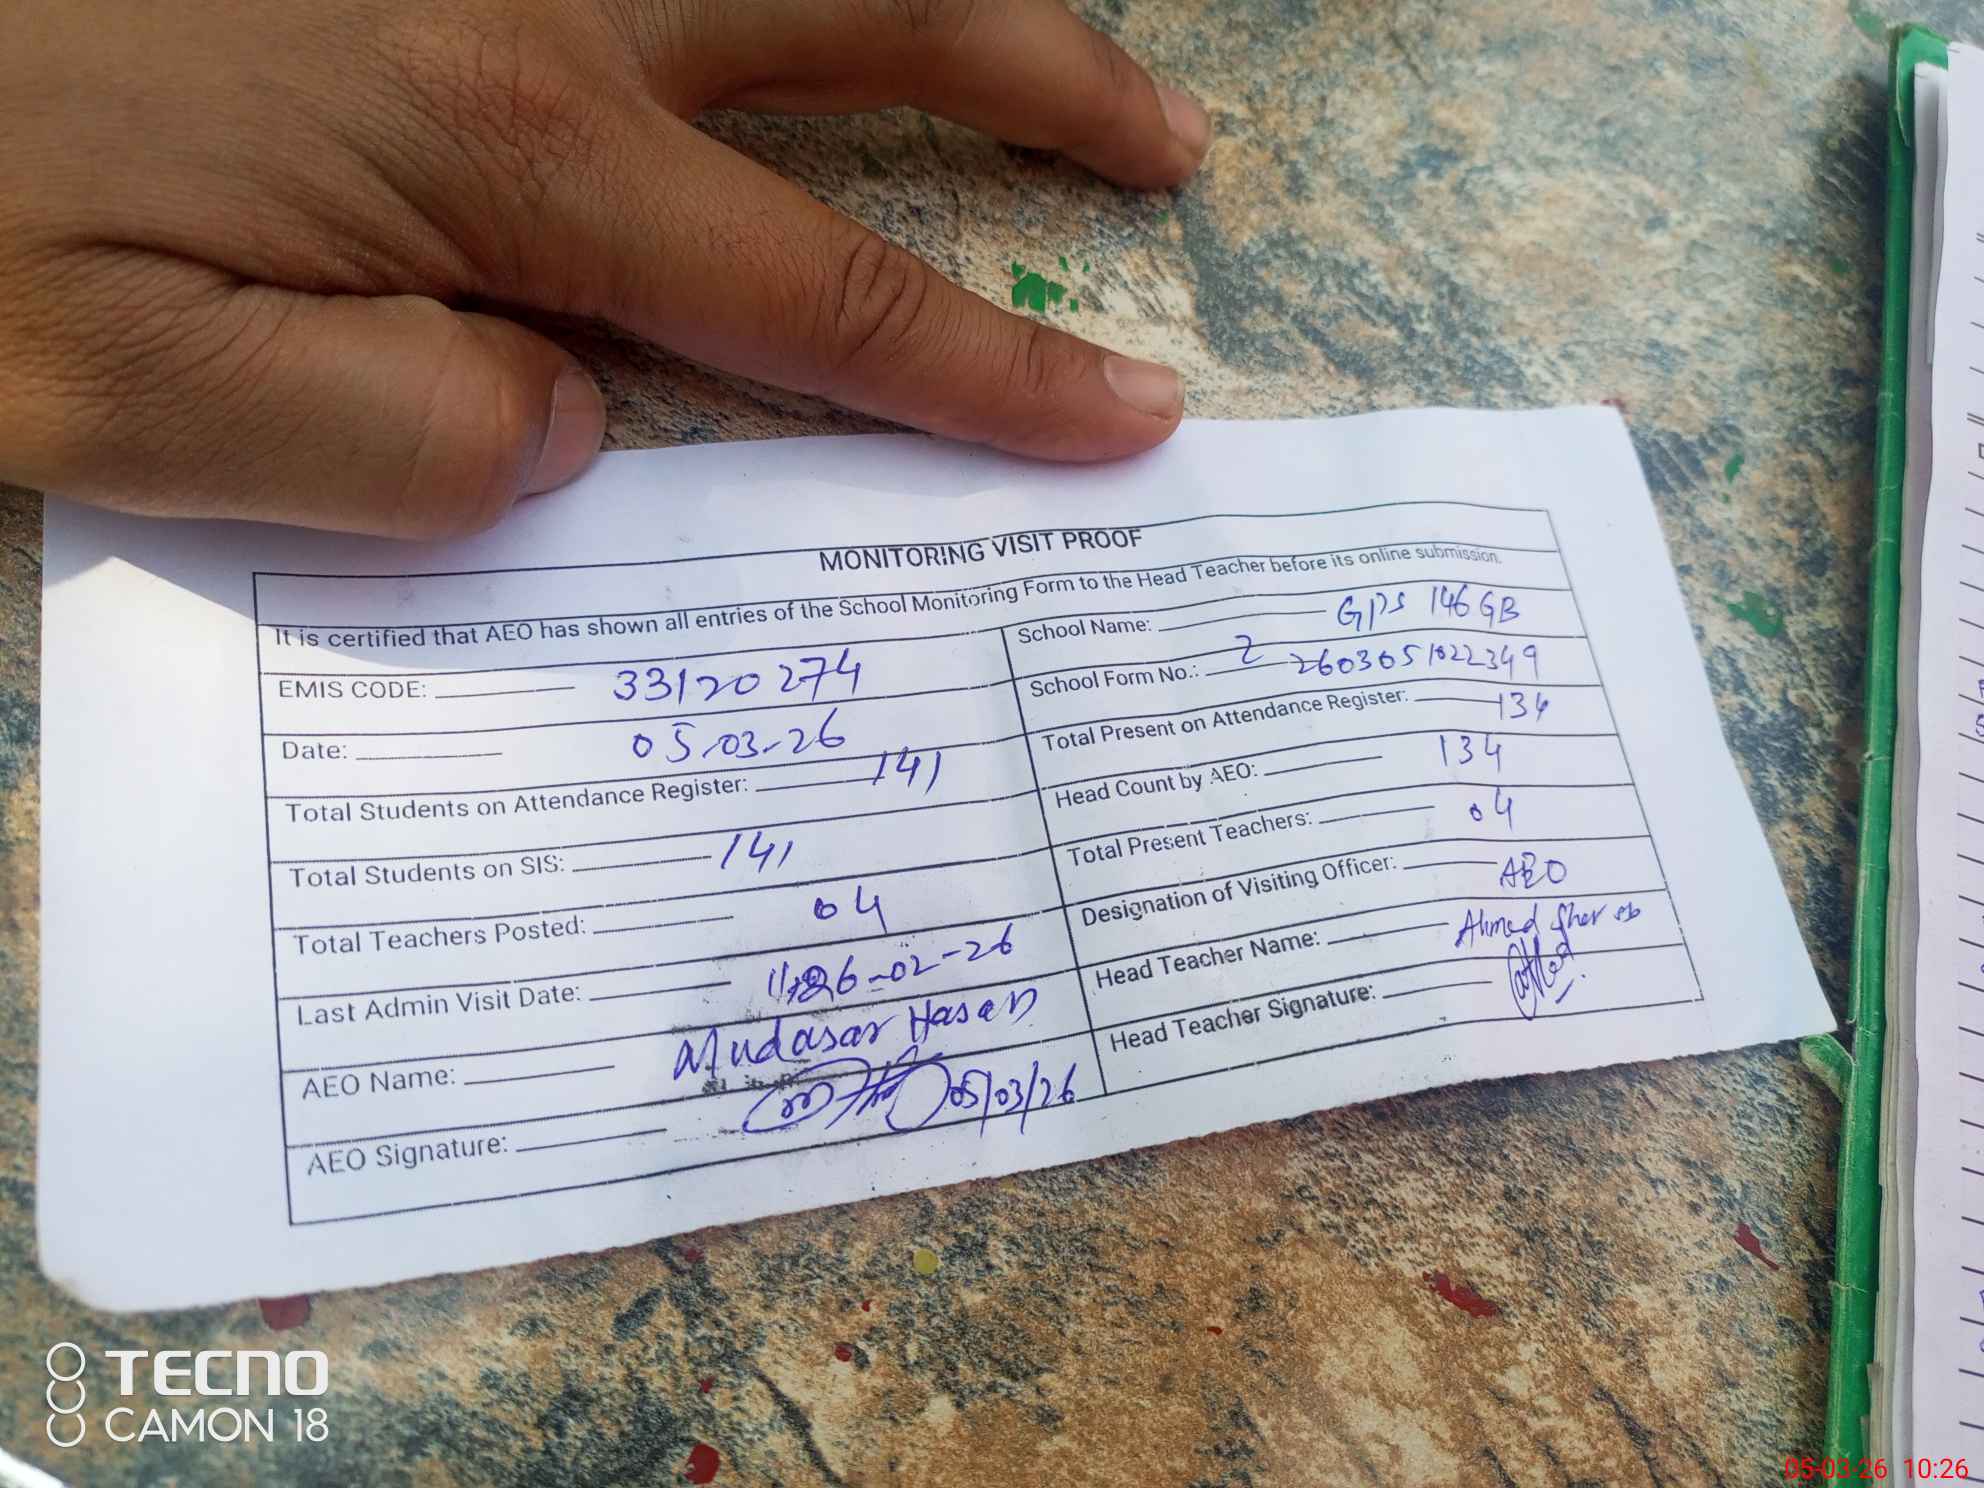 MONITORING VISIT PROOF
It is certified that AEO has shown all entries of the School Monitoring Form to the Head Teacher before its online submission.
EMIS CODE: 33120274
School Name: GPS 146 GB
Date: 05-03-26
School Form No.: 2 2603051022349
Total Students on Attendance Register: 141
Total Present on Attendance Register: 134
Total Students on SIS: 141
Head Count by AEO: 134
Total Teachers Posted: 04
Total Present Teachers: 04
Last Admin Visit Date: 26-02-26
Designation of Visiting Officer: AEO
AEO Name: Mudasar Hasan
Head Teacher Name: Ahmed Sher
AEO Signature: 05/03/26
Head Teacher Signature:
TECNO
CAMON 18
05-03-26 10:26